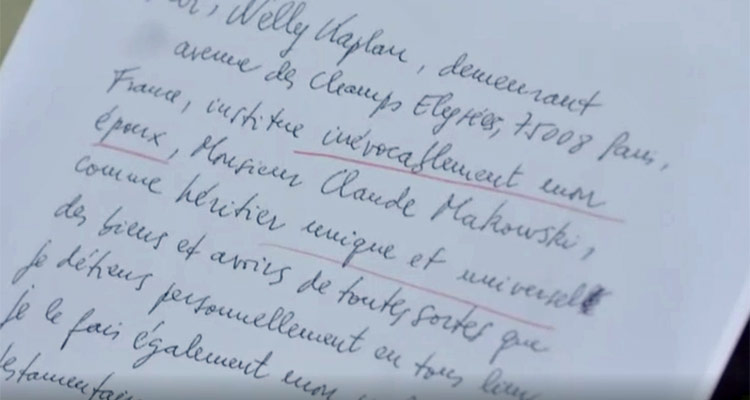 Nelly Kaplan, demeurant
avenue des Champs Elysées, 75008 Paris,
France, institue irrévocablement mon
époux, Monsieur Claude Makowski,
comme héritier unique et universel
des biens et avoirs de toutes sortes que
je détiens personnellement en tous lieux
je le fais également mon
testamentaire